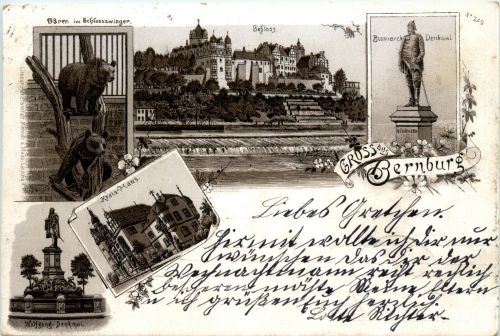 Bären im Schlosszwinger.
Schloss.
Bismarck Denkmal
No 229
GRUSS aus
Bernburg
Kreis-Haus.
Wolfgang-Denkmal.
Liebes Gretchen.
Hirmit wollte ich dir nur
wünschen das dir der
Weihnachtmann recht reichlich
bescheren möchte Deine Eltern
u ich grüßen sich herzlich
Richter.